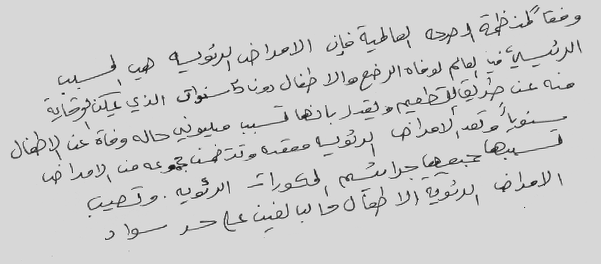 وفقاً لمنظمة الصحه العالمية فإن الامراض الرئويه هب المسبب
الرئيسي في العالم لوفاه الرضع والاطفال دون 5 سنوات الذي يمكن الوقاية
منه عن طريق التطعيم ويقدر بانها تسبب مليوني حاله وفاة عن الاطفال
سنوياً وتعد الأمراض الرئويه معقده وتتضمن مجموعه من الامراض
تسببها جميعها جراثيم المكورات الرئويه . وتصيب
الامراض الرئوية الاطفال والبالغين على حد سواء